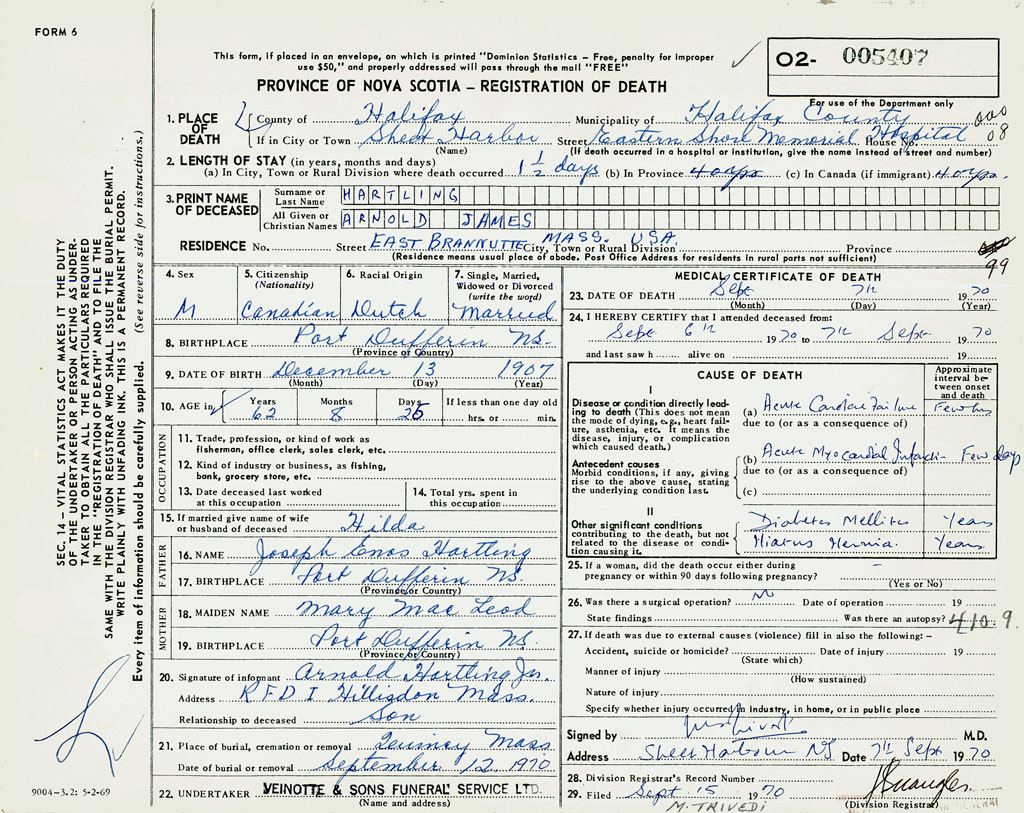 FORM 6
This form, if placed in an envelope, on which is printed "Dominion Statistics – Free, penalty for improper
use $50," and properly addressed will pass through the mail "FREE"
02- 005407
PROVINCE OF NOVA SCOTIA – REGISTRATION OF DEATH
For use of the Department only
1. PLACE OF DEATH
County of Halifax Municipality of Halifax County 000
If in City or Town Sheet Harbor Street Eastern Shore Memorial Hospital House No. 08
(Name) (If death occurred in a hospital or institution, give the name instead of street and number)
2. LENGTH OF STAY (in years, months and days)
(a) In City, Town or Rural Division where death occurred 1 1/2 days (b) In Province 40 yrs (c) In Canada (if immigrant) 40 yrs.
3. PRINT NAME OF DECEASED
Surname or Last Name HARTLING
All Given or Christian Names ARNOLD JAMES
RESIDENCE No. Street EAST City, Town or Rural Division MASS. USA Province
(Residence means usual place of abode. Post Office Address for residents in rural parts not sufficient)
99
4. Sex M
5. Citizenship (Nationality) Canadian
6. Racial Origin Dutch
7. Single, Married, Widowed or Divorced (write the word) Married
8. BIRTHPLACE Port Dufferin NS.
(Province or Country)
9. DATE OF BIRTH December 13 1907
(Month) (Day) (Year)
10. AGE in Years 62 Months 8 Days 25 If less than one day old hrs. or min.
OCCUPATION
11. Trade, profession, or kind of work as
fisherman, office clerk, sales clerk, etc.
12. Kind of industry or business, as fishing,
bank, grocery store, etc.
13. Date deceased last worked
at this occupation
14. Total yrs. spent in
this occupation
15. If married give name of wife
or husband of deceased Hilda
FATHER
16. NAME Joseph Enos Hartling
17. BIRTHPLACE Port Dufferin NS.
(Province or Country)
MOTHER
18. MAIDEN NAME Mary Mac Leod
19. BIRTHPLACE Port Dufferin NS.
(Province or Country)
20. Signature of informant Arnold Hartling Jr.
Address RFD 1 Mass.
Relationship to deceased Son
21. Place of burial, cremation or removal Quincy Mass
Date of burial or removal September 12, 1970
22. UNDERTAKER VEINOTTE & SONS FUNERAL SERVICE LTD.
(Name and address)
MEDICAL CERTIFICATE OF DEATH
23. DATE OF DEATH Sept 7th 1970
(Month) (Day) (Year)
24. I HEREBY CERTIFY that I attended deceased from:
Sept 6th 1970 to 7th Sept 1970
and last saw h alive on 19
CAUSE OF DEATH
Approximate interval between onset and death
I
Disease or condition directly leading to death (This does not mean the mode of dying, e.g., heart failure, asthenia, etc. It means the disease, injury, or complication which caused death.)
(a) Acute Cardiac Failure Few hrs
due to (or as a consequence of)
Antecedent causes
Morbid conditions, if any, giving rise to the above cause, stating the underlying condition last.
(b) Acute Myocardial Infarct- Few days
due to (or as a consequence of)
(c)
II
Other significant conditions contributing to the death, but not related to the disease or condition causing it.
Diabetes Mellitus Years
Hiatus Hernia. Years.
25. If a woman, did the death occur either during
pregnancy or within 90 days following pregnancy? –
(Yes or No)
26. Was there a surgical operation? No Date of operation 19
State findings Was there an autopsy? 410.9
27. If death was due to external causes (violence) fill in also the following: –
Accident, suicide or homicide? Date of injury 19
(State which)
Manner of injury
(How sustained)
Nature of injury
Specify whether injury occurred in industry, in home, or in public place
Signed by M.D.
Address Sheet Harbour NS Date 7th Sept 1970
28. Division Registrar's Record Number
29. Filed Sept 15 1970
(Division Registrar)
M. TRIVEDI
SEC. 14 – VITAL STATISTICS ACT MAKES IT THE DUTY
OF THE UNDERTAKER OR PERSON ACTING AS UNDER-
TAKER TO OBTAIN ALL THE PARTICULARS REQUIRED
IN THE "REGISTRATION OF DEATH" AND TO FILE THE
SAME WITH THE DIVISION REGISTRAR WHO SHALL ISSUE THE BURIAL PERMIT.
WRITE PLAINLY WITH UNFADING INK. THIS IS A PERMANENT RECORD.
Every item of information should be carefully supplied. (See reverse side for instructions.)
9004–3.2: 5-2-69